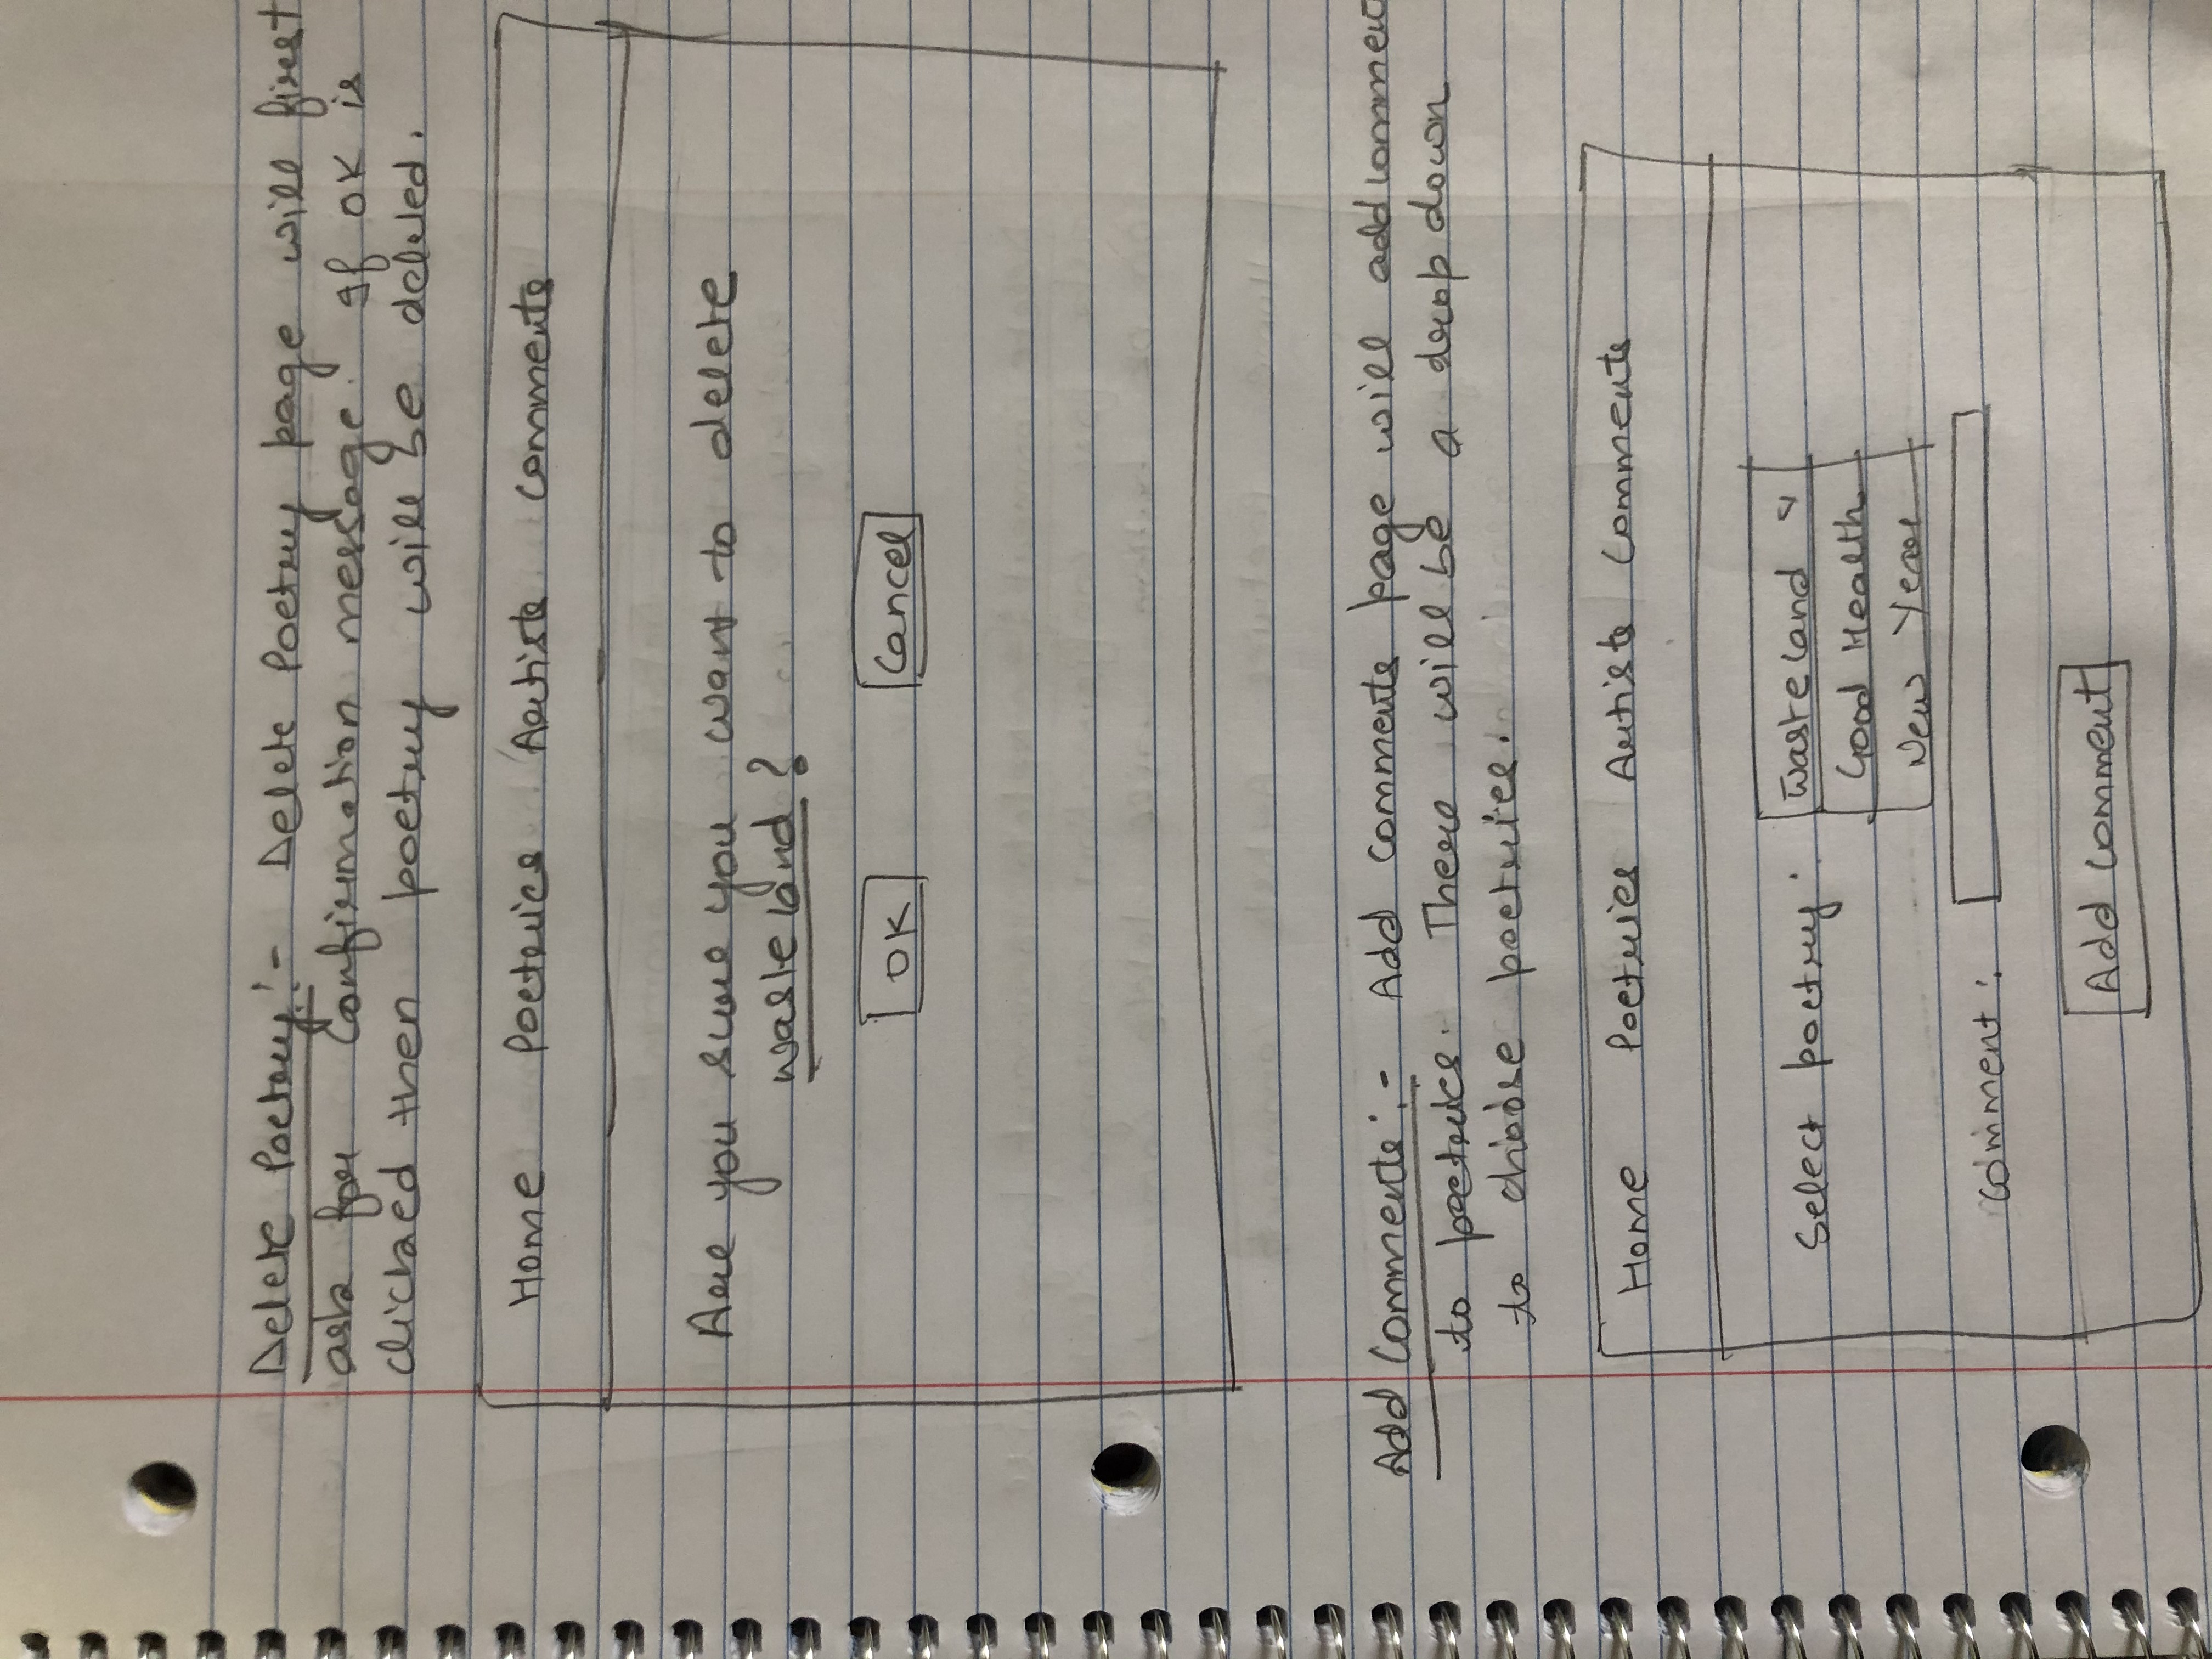 Delete Poetry:- Delete Poetry page will first
ask for Confirmation message. If OK is
clicked then poetry will be deleted.
Home Poetries Artists Comments
Are you sure you want to delete
wasteland?
OK Cancel
Add Comments:- Add Comments page will add comment
to poetries. There will be a drop down
to choose poetries.
Home Poetries Artists Comments
Select poetry: Wasteland
Good Health
New Year
Comment:
Add Comment